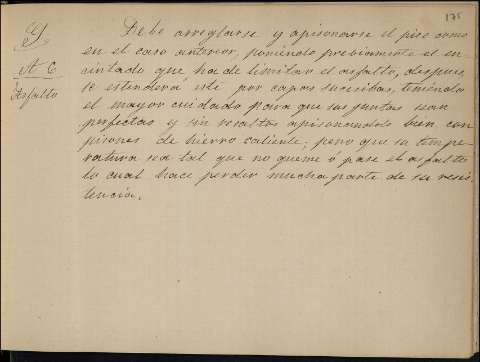 175
Debe arreglarse y apisonarse el piso como
en el caso anterior, poniendo prebiamente el en-
cintado que ha de limitar el asfalto, despues
se estenderá este por capas sucesibas, teniendo
el mayor cuidado para que sus juntas sean
perfectas y sin resaltos apisonandolo bien con
pisones de hierro caliente; pero que su tempe-
ratura sea tal que no queme ó pase el asfalto
lo cual hace perder mucha parte de su resis-
tencia.
A C
Asfalto